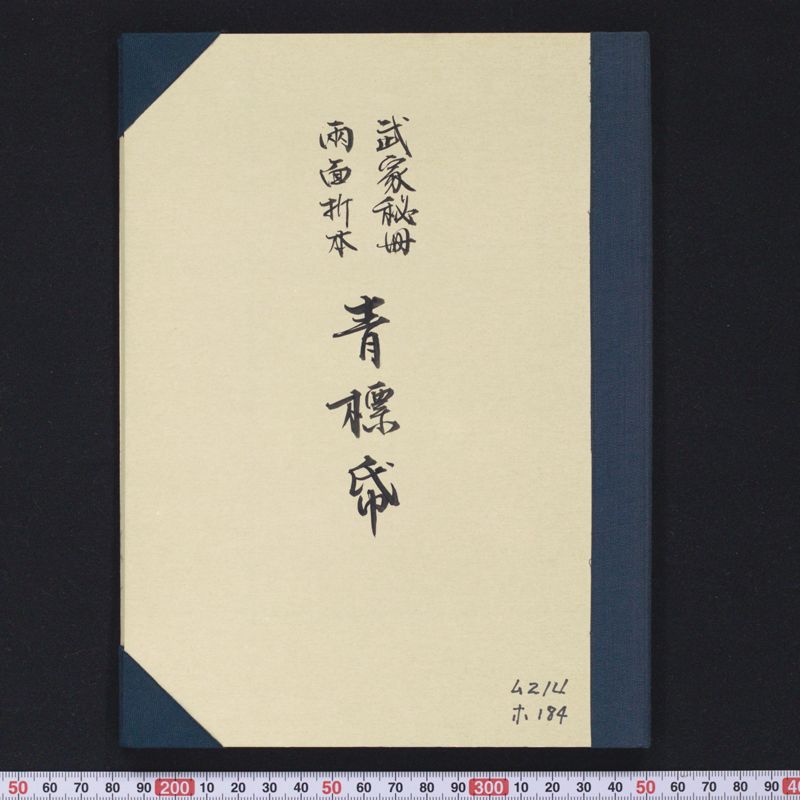 武家秘冊
両面折本
青標帋
ム214
ホ184
50 60 70 80 90 200 10 20 30 40 50 60 70 80 90 300 10 20 30 40 50 60 70 80 90